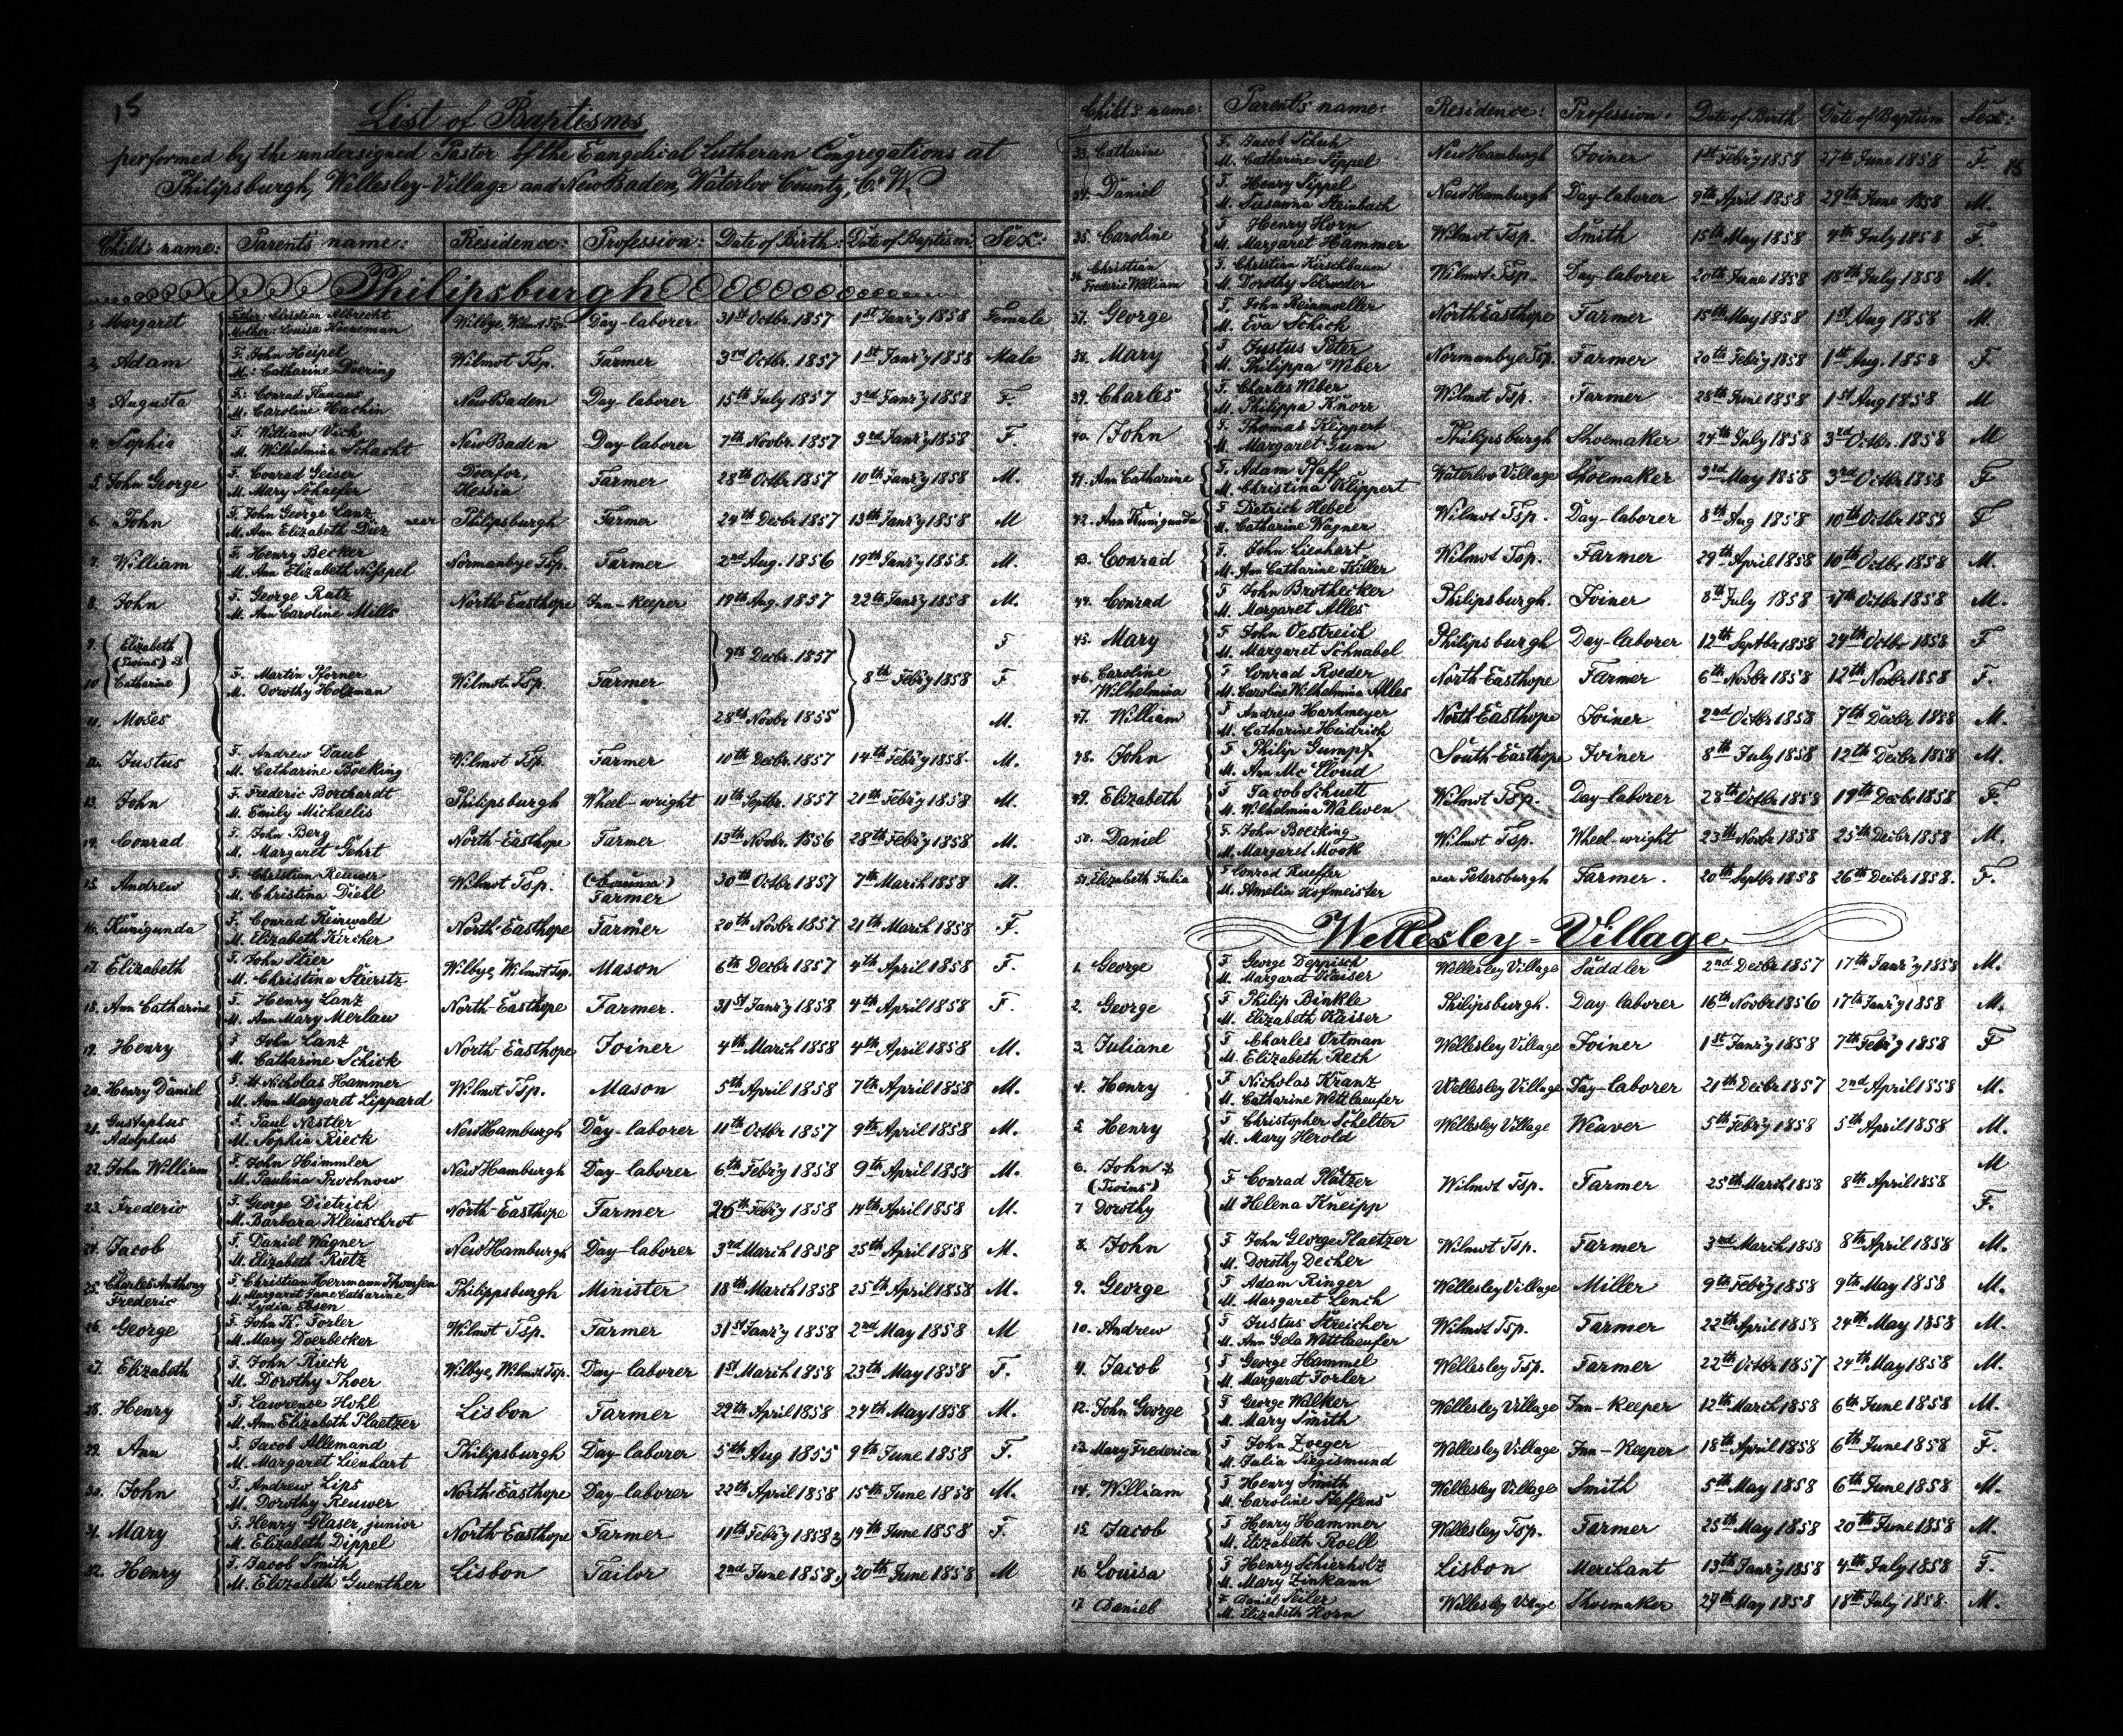 15
List of Baptisms
performed by the undersigned Pastor of the Evangelical Lutheran Congregations at
Philipsburgh, Wellesley-Village and New Baden, Waterloo County, C. W.
Child's name: Parents name: Residence: Profession: Date of Birth: Date of Baptism: Sex:
Philipsburgh
1, Margaret Father: Christian Albrecht Mother: Louisa Künneman Wilbye, Wilmot Tsp. Day-laborer 31st Octbr. 1857 1st Janr'y 1858 Female
2, Adam F. John Heipel M: Catharine Doering Wilmot Tsp. Farmer 3rd Octbr. 1857 1st Janr'y 1858 Male
3, Augusta F: Conrad M. Caroline Hachin New Baden Day-laborer 15th July 1857 3rd Janr'y 1858 F.
4. Sophia F. William Vick M. Wilhelmina Schacht New Baden Day-laborer 7th Novbr. 1857 3rd Janr'y 1858 F.
5. John George F. Conrad Geiser M. Mary Schaefer Hessia Farmer 28th Octbr 1857 10th Janr'y 1858 M.
6. John F. John George Lanz M. Ann Elizabeth Diez near Philipsburgh Farmer 24th Decbr 1857 13th Janr'y 1858 M
7. William F. Henry Becker M. Ann Elizabeth Nispel Normanbye Tsp. Farmer 2nd Aug. 1856 19th Janr'y 1858. M.
8. John F. George Ratz M. Ann Caroline Mills North-Easthope Inn-Keeper 19th Aug. 1857 22th Janr'y 1858 M.
9. Elizabeth F
(Twins) & 9th Decbr. 1857
10 Catharine F. Martin Pforner M. Dorothy Holzman Wilmot Tsp. Farmer 8th Febr'y 1858 F
11. Moses 28th Novbr 1855 M.
12. Justus F. Andrew Daub M. Catharine Boeking Wilmot Tsp. Farmer 10th Decbr. 1857 14th Febr'y 1858. M.
13. John F. Frederic Borchardt M. Emily Michaelis Philipsburgh Wheel-wright 11th Septbr. 1857 21th Febr'y 1858 M.
14. Conrad F. John Berg M. Margaret Gehrt North-Easthope Farmer 13th Novbr. 1856 28th Febr'y 1858 M.
15. Andrew F. Christian Reuwer M. Christina Diehl Wilmot Tsp. Farmer 30th Octbr 1857 7th March 1858 M.
16. Kunigunda F. Conrad Reinwald M. Elizabeth Kircher North-Easthope Farmer 20th Novbr 1857 21th March 1858 F.
17. Elizabeth F. John Stier M. Christina Stieritz Wilbye, Wilmot Tsp. Mason 6th Decbr 1857 4th April 1858 F.
18. Ann Catharine F. Henry Lanz M. Ann Mary Merlau North-Easthope Farmer. 31st Janr'y 1858 4th April 1858 F.
19. Henry F John Lanz M. Catharine Schick North-Easthope Joiner 4th March 1858 4th April 1858 M.
20. Henry Daniel F. Nicholas Hammer M. Ann Margaret Lippard Wilmot Tsp. Mason 5th April 1858 7th April 1858 M.
21. Gustaphus Adolphus F. Paul Nestler M. Sophia Rieck New Hamburgh Day-laborer 11th Octbr 1857 9th April 1858 M.
22. John William F. John Himmler M. Paulina Prochnow New Hamburgh Day-laborer 6th Febr'y 1858 9th April 1858 M.
23. Frederic F. George Dietrich M. Barbara Kleinschrot North-Easthope Farmer 26th Febr'y 1858 14th April 1858 M.
24. Jacob F. Daniel Wagner M. Elizabeth Rietz New Hamburgh Day-laborer 3rd March 1858 25th April 1858 M.
25. Charles Anthony Frederic F. Christian Herrmann Thomsen M. Margaret Jane Catharine Lydia Ebsen Philippsburgh Minister 18th March 1858 25th April 1858 M.
26. George F. John K. Forler M. Mary Doerbecker Wilmot Tsp. Farmer 31st Janr'y 1858 2nd May 1858 M
27. Elizabeth F. John Rieck M. Dorothy Thoer Wilbye, Wilmot Tsp. Day-laborer 1st March 1858 23th May 1858 F.
28. Henry F. Lawrence Hohl M. Ann Elizabeth Plaetzer Lisbon Farmer 22th April 1858 24th May 1858 M.
29. Ann F. Jacob Allemand M. Margaret Lienhart Philipsburgh Day-laborer 5th Aug 1855 9th June 1858 F.
30. John F. Andrew Lips M. Dorothy Reuwer North-Easthope Day-laborer 22th April 1858 15th June 1858 M.
31. Mary F. Henry Glaser, junior M. Elizabeth Dippel North-Easthope Farmer 11th Febr'y 1858 19th June 1858 F.
32. Henry F. Jacob Smith M. Elizabeth Guenther Lisbon Tailor 2nd June 1858 20th June 1858 M
Child's name: Parent's name: Residence: Profession: Date of Birth Date of Baptism Sex:
33. Catharine F. Jacob Schuh M. Catharine Sippel New Hamburgh Joiner 1st Febr'y 1858 27th June 1858 F. 15
34. Daniel F. Henry Sippel M. Susanna Steinbach New Hamburgh Day-laborer 9th April 1858 29th June 1858 M.
35. Caroline F Henry Horn M. Margaret Hammer Wilmot Tsp. Smith 15th May 1858 4th July 1858 F.
36. Christian Frederic William F. Christian Kirschbaum M. Dorothy Schroeder Wilmot Tsp. Day-laborer 20th June 1858 18th July 1858 M.
37. George F. John Reinmoeller M. Eva Schick North Easthope Farmer 15th May 1858 1st Aug 1858 M.
38. Mary F Justus Peter M. Philippa Weber Normanbye Tsp. Farmer 20th Febr'y 1858 1st Aug. 1858 F
39. Charles F. Charles Weber M. Philippa Knorr Wilmot Tsp. Farmer 28th June 1858 1st Aug 1858 M
40. John F. Thomas Klippert M. Margaret Gunn Philipsburgh Shoemaker 24th July 1858 3rd Octbr. 1858 M
41. Ann Catharine F. Adam Pfaff M. Christina Klippert Waterloo Village Shoemaker 3rd May 1858 3rd Octbr 1858 F
42. Ann Kunigunda F Dietrich Hebel M. Catharine Wagner Wilmot Tsp. Day-laborer 8th Aug 1858 10th Octbr 1858 F
43. Conrad F. John Lienhart M. Ann Catharine Killer Wilmot Tsp. Farmer 29th April 1858 10th Octbr 1858 M.
44. Conrad F John Brothecker M. Margaret Alles Philipsburgh. Joiner 8th July 1858 17th Octbr 1858 M.
45. Mary F John Oestreich M. Margaret Schnabel Philipsburgh Day-laborer 12th Septbr 1858 24th Octbr 1858 F
46. Caroline Wilhelmina F Conrad Roeder M. Caroline Wilhelmina Alles North-Easthope Farmer 6th Novbr 1858 12th Novbr 1858 F.
47. William F Andrew Hartmeyer M. Catharine Heidrich North-Easthope Joiner 2nd Octbr 1858 7th Decbr 1858 M.
48. John F Philip Gumpf M. Ann McCloud South-Easthope Joiner 8th July 1858 12th Decbr 1858 M.
49. Elizabeth F Jacob Schuett M. Wilhelmina Walwen Wilmot Tsp. Day-laborer 28th Octbr 1858 19th Decbr 1858 F.
50. Daniel F. John Boecking M. Margaret Mook Wilmot Tsp. Wheel-wright 23th Novbr 1858 25th Decbr 1858 M.
51. Elizabeth Julia F Conrad Kueffer M. Amelia Hofmeister near Petersburgh Farmer. 20th Septbr 1858 26th Decbr 1858. F.
Wellesley-Village
1. George F George Deppisch M. Margaret Kaiser Wellesley Village Saddler 2nd Decbr 1857 17th Janr'y 1858 M.
2. George F Philip Binkle M. Elizabeth Kaiser Philipsburgh. Day laborer 16th Novbr 1856 17th Janr'y 1858 M.
3. Juliane F Charles Ortman M. Elizabeth Reth Wellesley Village Joiner 1st Janr'y 1858 7th Febr'y 1858 F
4. Henry F Nicholas Kranz M. Catharine Wettlaeufer Wellesley Village Day-laborer 21th Decbr 1857 2nd April 1858 M.
5. Henry F Christopher Schelter M. Mary Herold Wellesley Village Weaver 5th Febr'y 1858 5th April 1858 M.
6. John & M
(Twins) F Conrad Platzer Wilmot Tsp. Farmer 25th March 1858 8th April 1858
7 Dorothy M Helena Kneipp F.
8. John F John George Plaetzer M. Dorothy Decher Wilmot Tsp. Farmer 3rd March 1858 8th April 1858 M.
9. George F Adam Ringer M. Margaret Lench Wellesley Village Miller 9th Febr'y 1858 9th May 1858 M.
10. Andrew F Justus Streicher M. Ann Gela Wettlaeufer Wilmot Tsp. Farmer 22th April 1858 24th May 1858 M.
11. Jacob F George Hammel M. Margaret Forler Wellesley Tsp. Farmer 22th Octbr 1857 24th May 1858 M.
12. John George F George Walker M. Mary Smith Wellesley Village Inn-Keeper 12th March 1858 6th June 1858 M.
13. Mary Frederica F John Zoeger M. Julia Siegismund Wellesley Village Inn-Keeper 18th April 1858 6th June 1858 F.
14. William F Henry Smith M. Caroline Steffens Wellesley Village Smith 5th May 1858 6th June 1858 M.
15. Jacob F Henry Hammer M. Elizabeth Roell Wellesley Tsp. Farmer 25th May 1858 20th June 1858 M.
16 Louisa F Henry Schierholz M. Mary Zinkann Lisbon Merchant 13th Janr'y 1858 4th July 1858 F.
17 Daniel F Daniel Seiler M. Elizabeth Horn Wellesley Village Shoemaker 27th May 1858 18th July 1858. M.